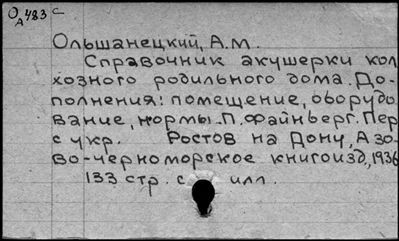 О А 483 с
Ольшанецкий, А.М.
Справочник акушерки кол
хозного родильного дома. До-
полнения: помещение, оборудо
вание, нормы. П. Файнберг. Пер
с укр. Ростов на Дону, Азо-
во-черноморское книгоизд, 1936
133 стр. с илл.